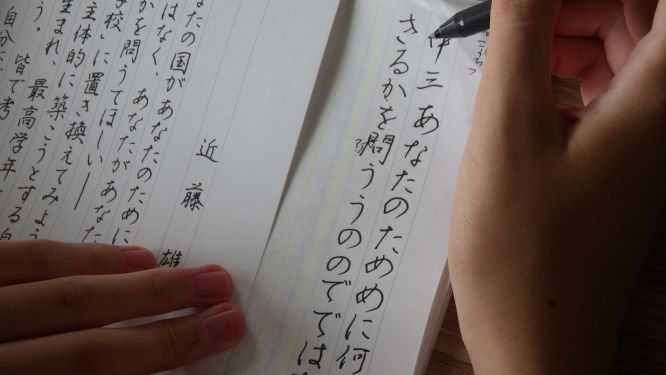 中三あなたのためめに何
きるかを問ううののでではな
近藤雄
なたの国があなたのために
はなく、あなたがあなた
かを問うてほしい――
校」に置き換えてみよう
主体的に築こうとする自
う。最高学年
皆で考